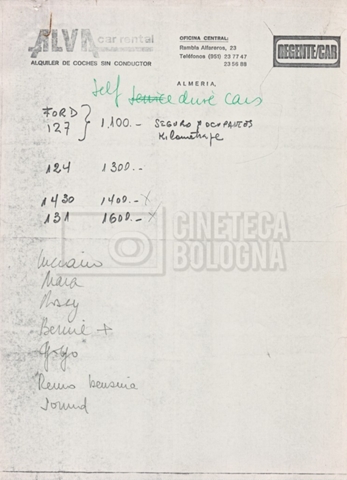 ALVA car rental
ALQUILER DE COCHES SIN CONDUCTOR
OFICINA CENTRAL:
Rambla Alfareros, 23
Teléfonos (951) 23 77 47
23 56 88
REGENTE/CAR
ALMERIA,
self service drive cars
FORD
127 } 1.100.- SEGURO OCUPANTES
Kilometraje
124 1300.-
1430 1400.- X
131 1600.- X
CINETECA
BOLOGNA
Luciano
Mara
Rosey
Bernie +
Yoyo
Remo benzina
sound